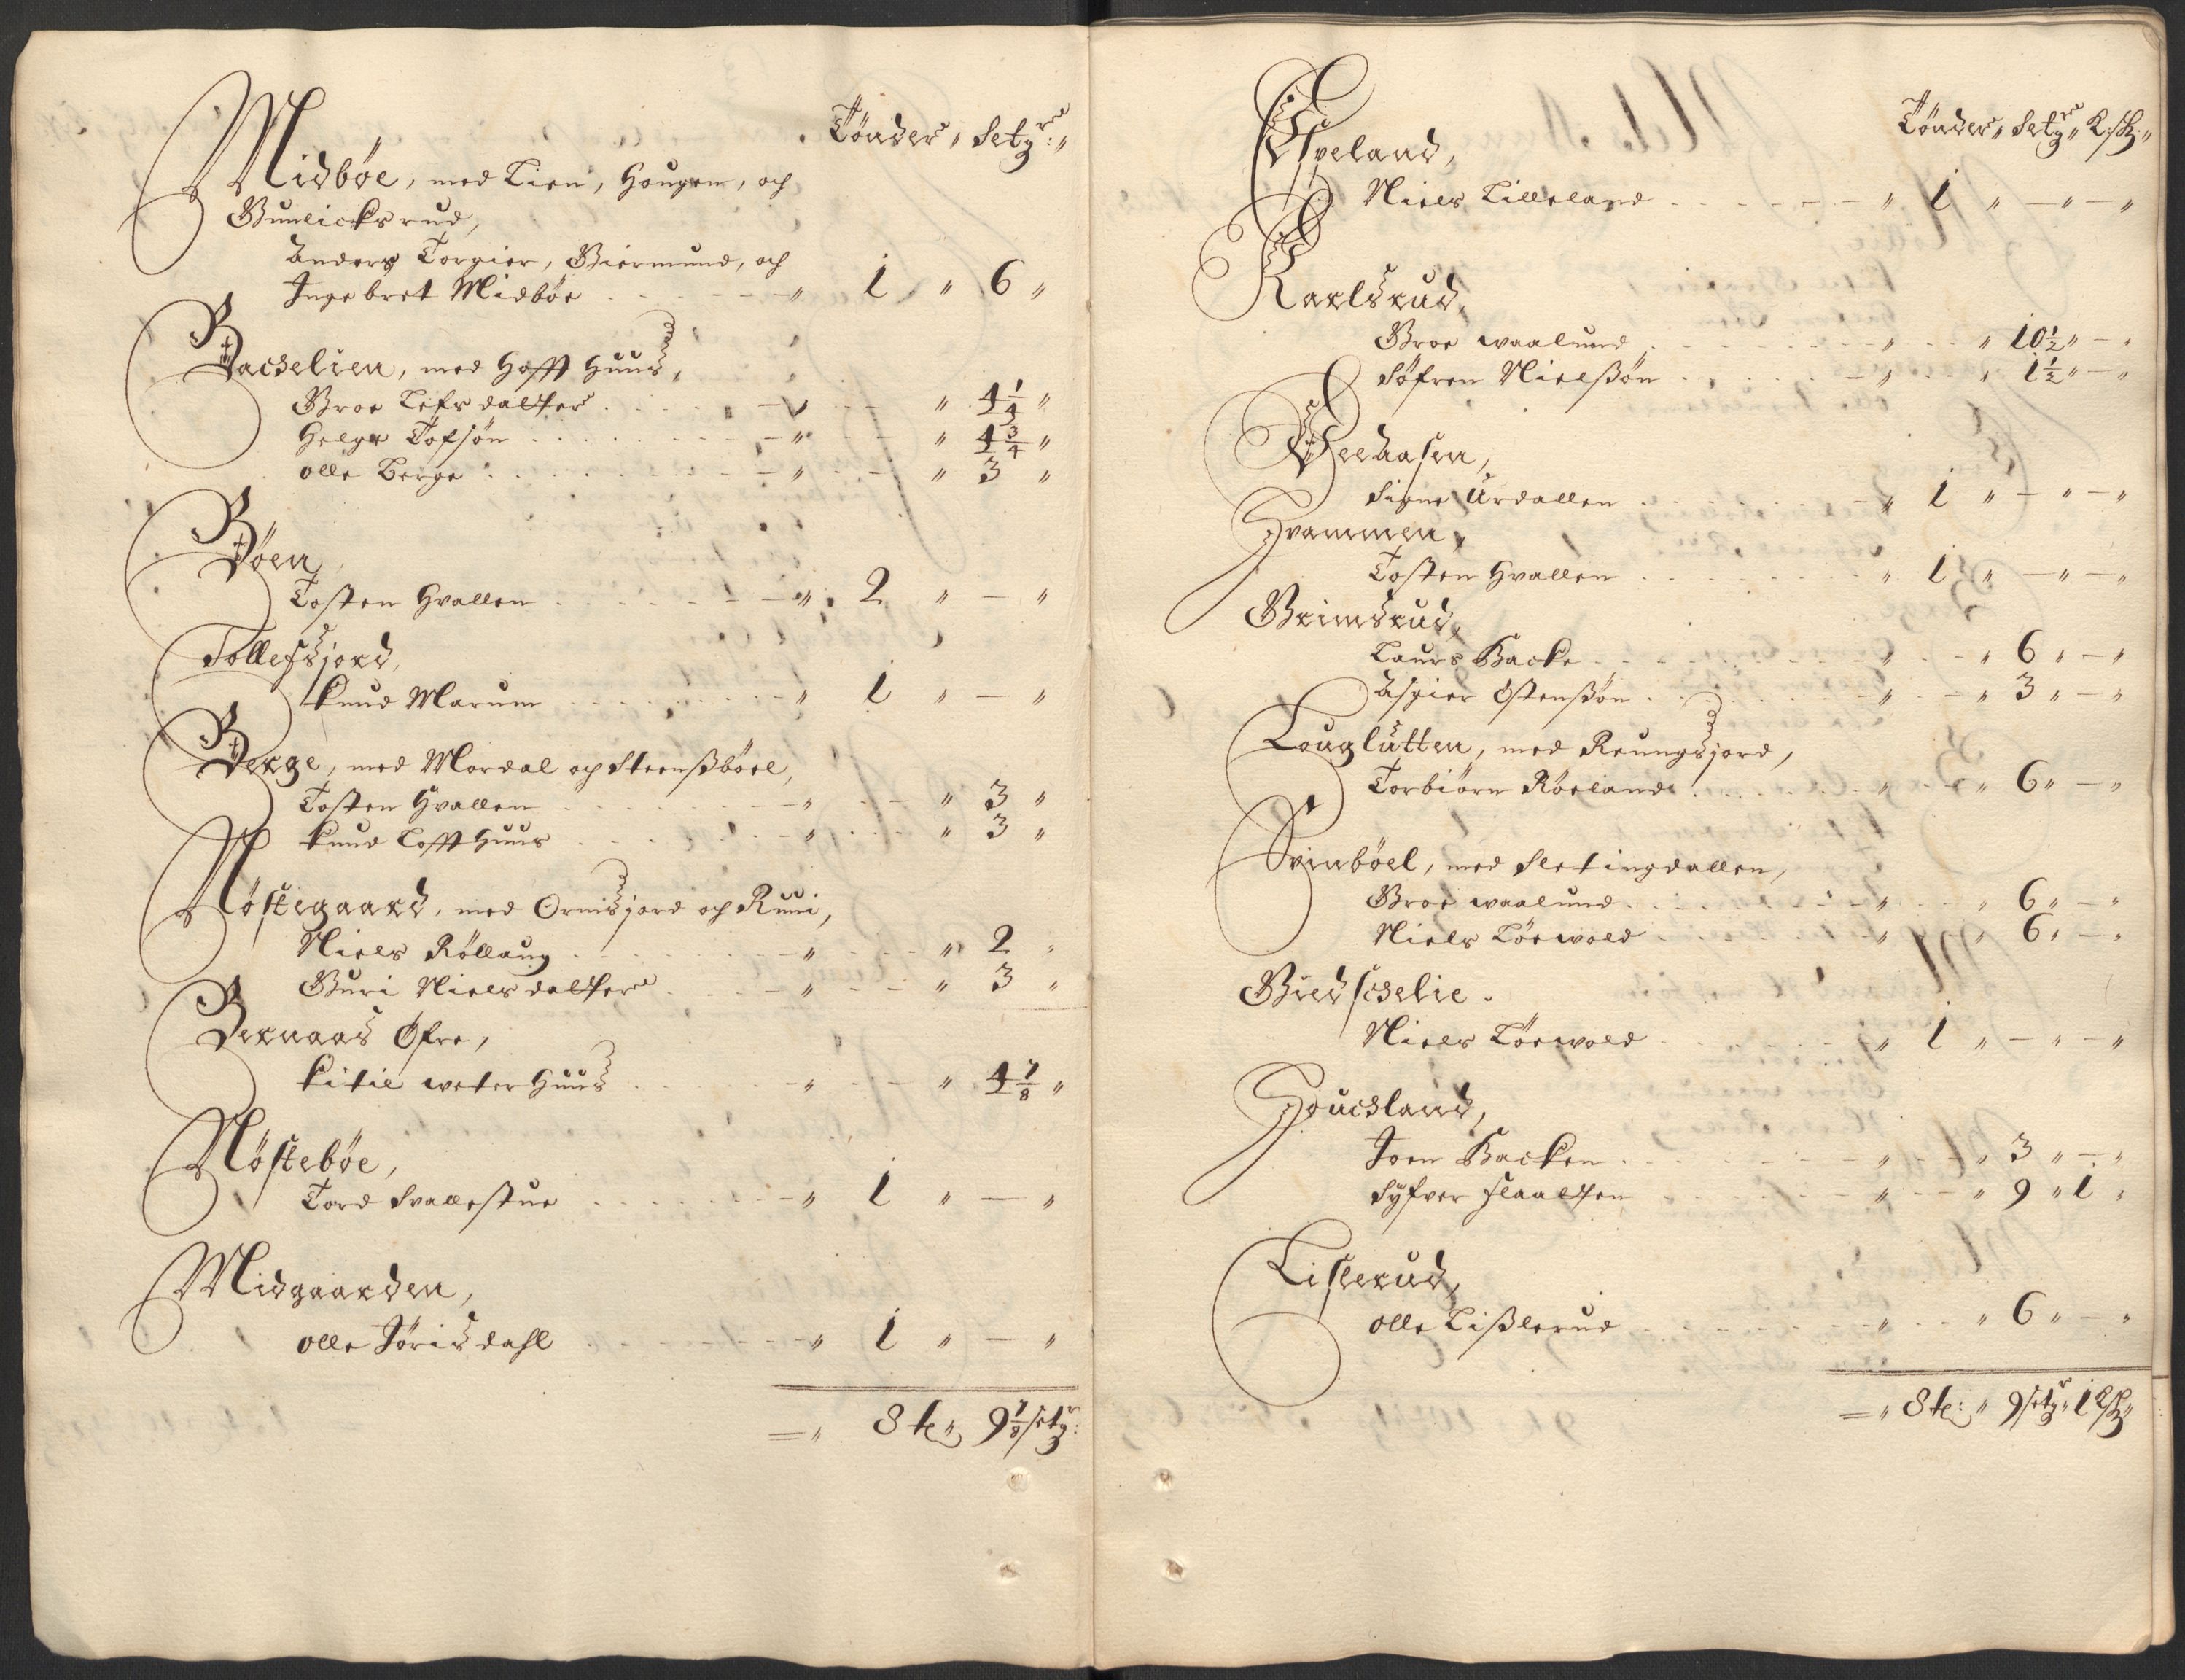 Tönder " Setgr: "
Midböe, med Lien, Hougen, och
Gunlicksrud,
Anders Torgier, Giermund, och
Ingebret Midböe - " 1 " 6 "
Backelien, med Hofft Huus,
Groe Lefsdatter - " 4 1/4 "
Helge Tofsön - " - " 4 3/4 "
olle Berge - " - " 3 "
Böen,
Tosten Hvallen - " 2 " - "
Tollefsjord,
Knud Marum - " 1 " - "
Berge, med Mordal og Steensböel,
Tosten Hvallen - " - " 3 "
Knud Loffthuus - " - " 3 "
Nöstegaard, med Ormisjord og Runi,
Niels Röllaug - " - " 2 "
Guri Nielsdatter - " - " 3 "
Bernaas Öfre,
Kitil weterHuus - " - " 4 7/8 "
Nösteböe,
Tord Svallestue - " 1 " - "
Midgaarden,
olle Jörisdahl - " 1 " - "
= " 8 te " 9 7/8 setgr:
Tönder " Setgr " L: sk: "
Espeland,
Niels Lilleland - " 1 " - " - "
Karlsrud,
Groe waalund - " - " 10 1/2 " - "
Söfren Nielsßön - " - " 1 1/2 " - "
Veelaasen,
Signe Urdallen - " 1 " - " - "
Hvammen,
Tosten Hvallen - " 1 " - " - "
Grimsrud,
Laurs Backe - " - " 6 " - "
Asgier Östenßön - " - " 3 " - "
Louglutten, med Reungsjord,
Torbiörn Röeland - " - " 6 " - "
Svinböel, med Sletingdallen,
Groe waalund - " - " 6 " - "
Niels Löewold - " - " 6 " - "
Giedschelie.
Niels Löewold - " 1 " - " - "
Houckland,
Joen Backen - " - " 3 " - "
Syfver Flaatten - " - " 9 " 1 "
Lislerud,
olle Lißlerud - " - " 6 " - "
= " 8 te: " 9 setgr " 1 L sk "